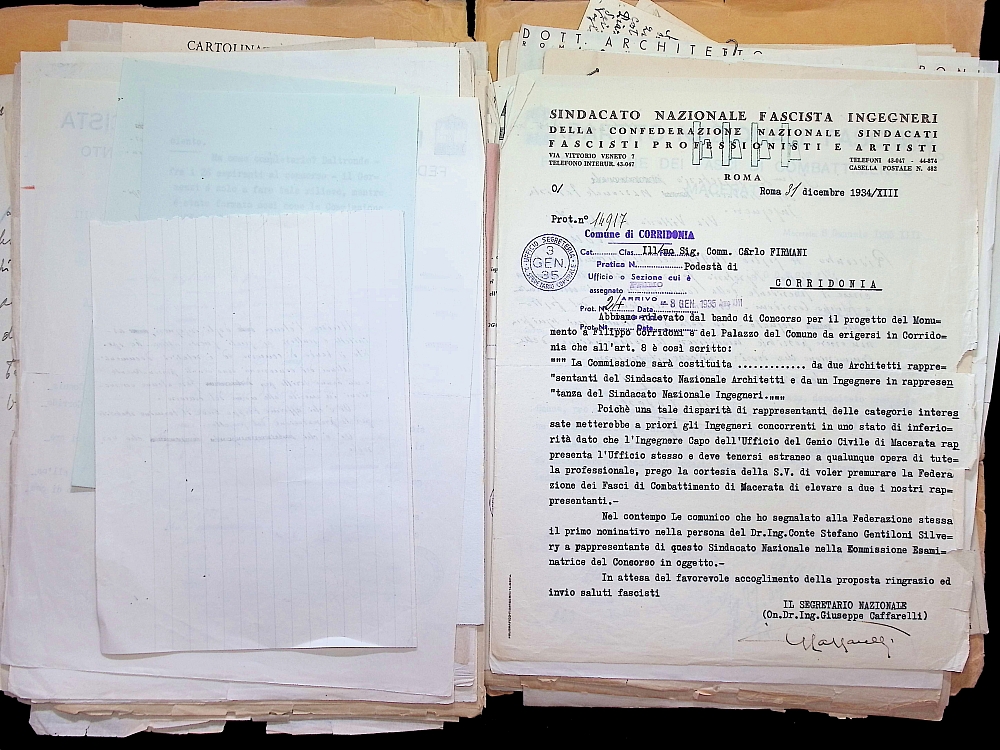 CARTOLINA
DOTT. ARCHITETTO
SINDACATO NAZIONALE FASCISTA INGEGNERI
DELLA CONFEDERAZIONE NAZIONALE SINDACATI
FASCISTI PROFESSIONISTI E ARTISTI
VIA VITTORIO VENETO 7
TELEFONO INTERUR. 43.047
TELEFONI 43-047 - 44-874
CASELLA POSTALE N. 482
ROMA
O/
Roma 31 dicembre 1934/XIII
Prot.n° 14917
Comune di CORRIDONIA
Cat. Clas. Ill/mo Sig. Comm. CArlo FIRMANI
Pratica N. Podestà di
UFFICIO SEGRETERIA
3 GEN. 35
Ufficio o Sezione cui è
assegnato
CORRIDONIA
ARRIVO
Prot. N. 24 Data - 8 GEN 1935
Abbiamo rilevato dal bando di Concorso per il progetto del Monu=
mento a Filippo Corridoni e del Palazzo del Comune da erigersi in Corrido=
Prot. N. Data
nia che all'art. 8 è così scritto:
""" La Commissione sarà costituita ............. da due Architetti rappre=
"sentanti del Sindacato Nazionale Architetti e da un Ingegnere in rappresen
"tanza del Sindacato Nazionale Ingegneri."""
Poichè una tale disparità di rappresentanti delle categorie interes
sate metterebbe a priori gli Ingegneri concorrenti in uno stato di inferio=
rità dato che l'Ingegnere Capo dell'Ufficio del Genio Civile di Macerata rap
presenta l'Ufficio stesso e deve tenersi estraneo a qualunque opera di tute=
la professionale, prego la cortesia della S.V. di voler premurare la Federa
zione dei Fasci di Combattimento di Macerata di elevare a due i nostri rap=
presentanti.-
Nel contempo Le comunico che ho segnalato alla Federazione stessa
il primo nominativo nella persona del Dr.Ing.Conte Stefano Gentiloni Silve=
ry a rappresentante di questo Sindacato Nazionale nella Kommissione Esami=
natrice del Consorso in oggetto.-
In attesa del favorevole accoglimento della proposta ringrazio ed
invio saluti fascisti
IL SEGRETARIO NAZIONALE
(On.Dr.Ing.Giuseppe Caffarelli)